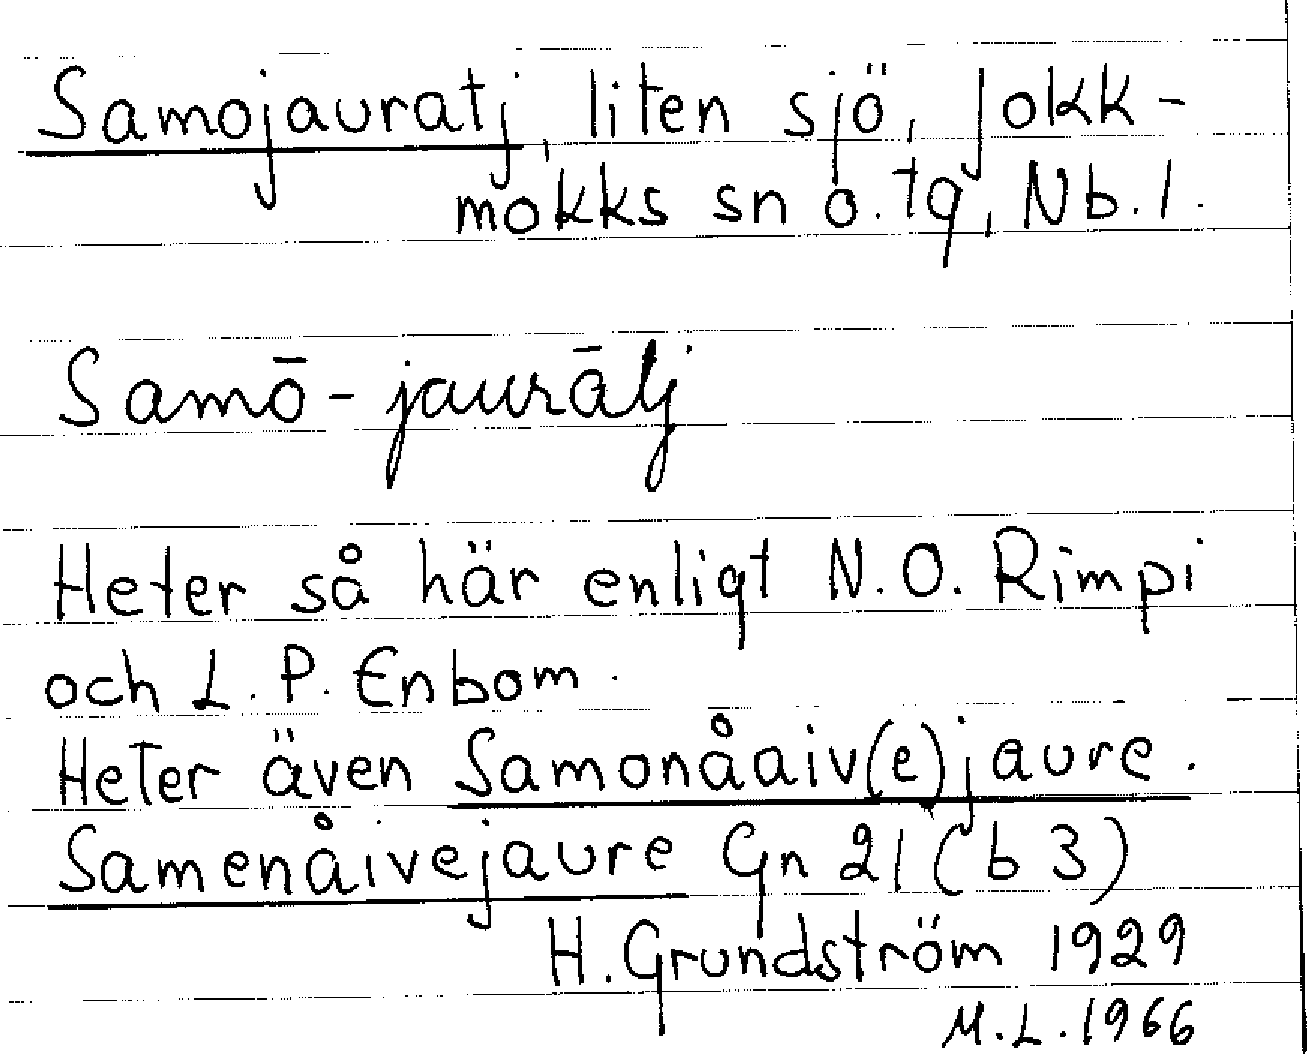 Samojauratj, liten sjö, Jokk-
mokks sn o. tg, Nb. l.
Samō-jaurātj
Heter så här enligt N. O. Rimpi
och L. P. Enbom.
Heter även Samonåaiv(e)jaure.
Samenåivejaure Gn 21 (b 3)
H. Grundström 1929
M. L. 1966